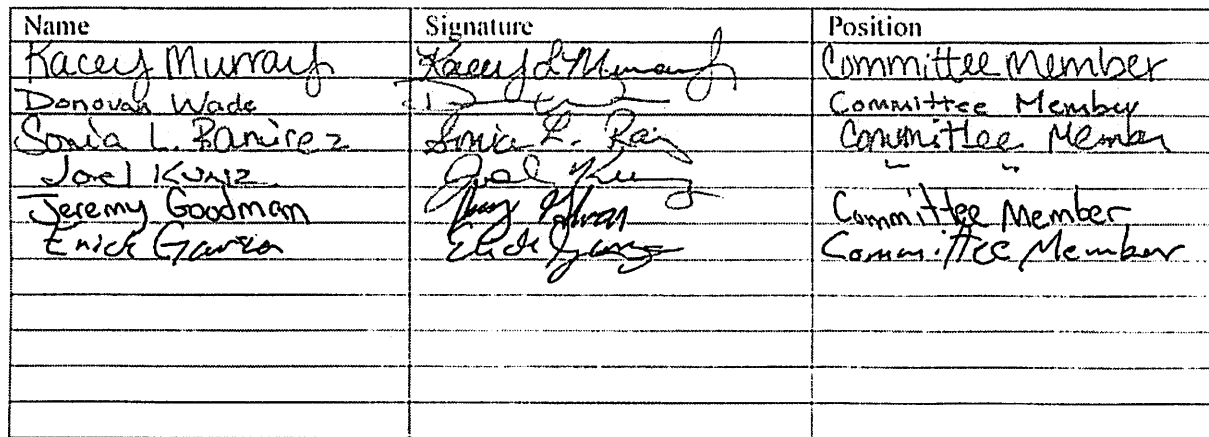 Name Signature Position
Kacey Murray Kacey L Murray Committee Member
Donovan Wade Committee Member
Sonia L. Ramirez Sonia L. Committee Member
Joel Kuniz Joel " "
Jeremy Goodman Committee Member
Erick Garcia Committee Member